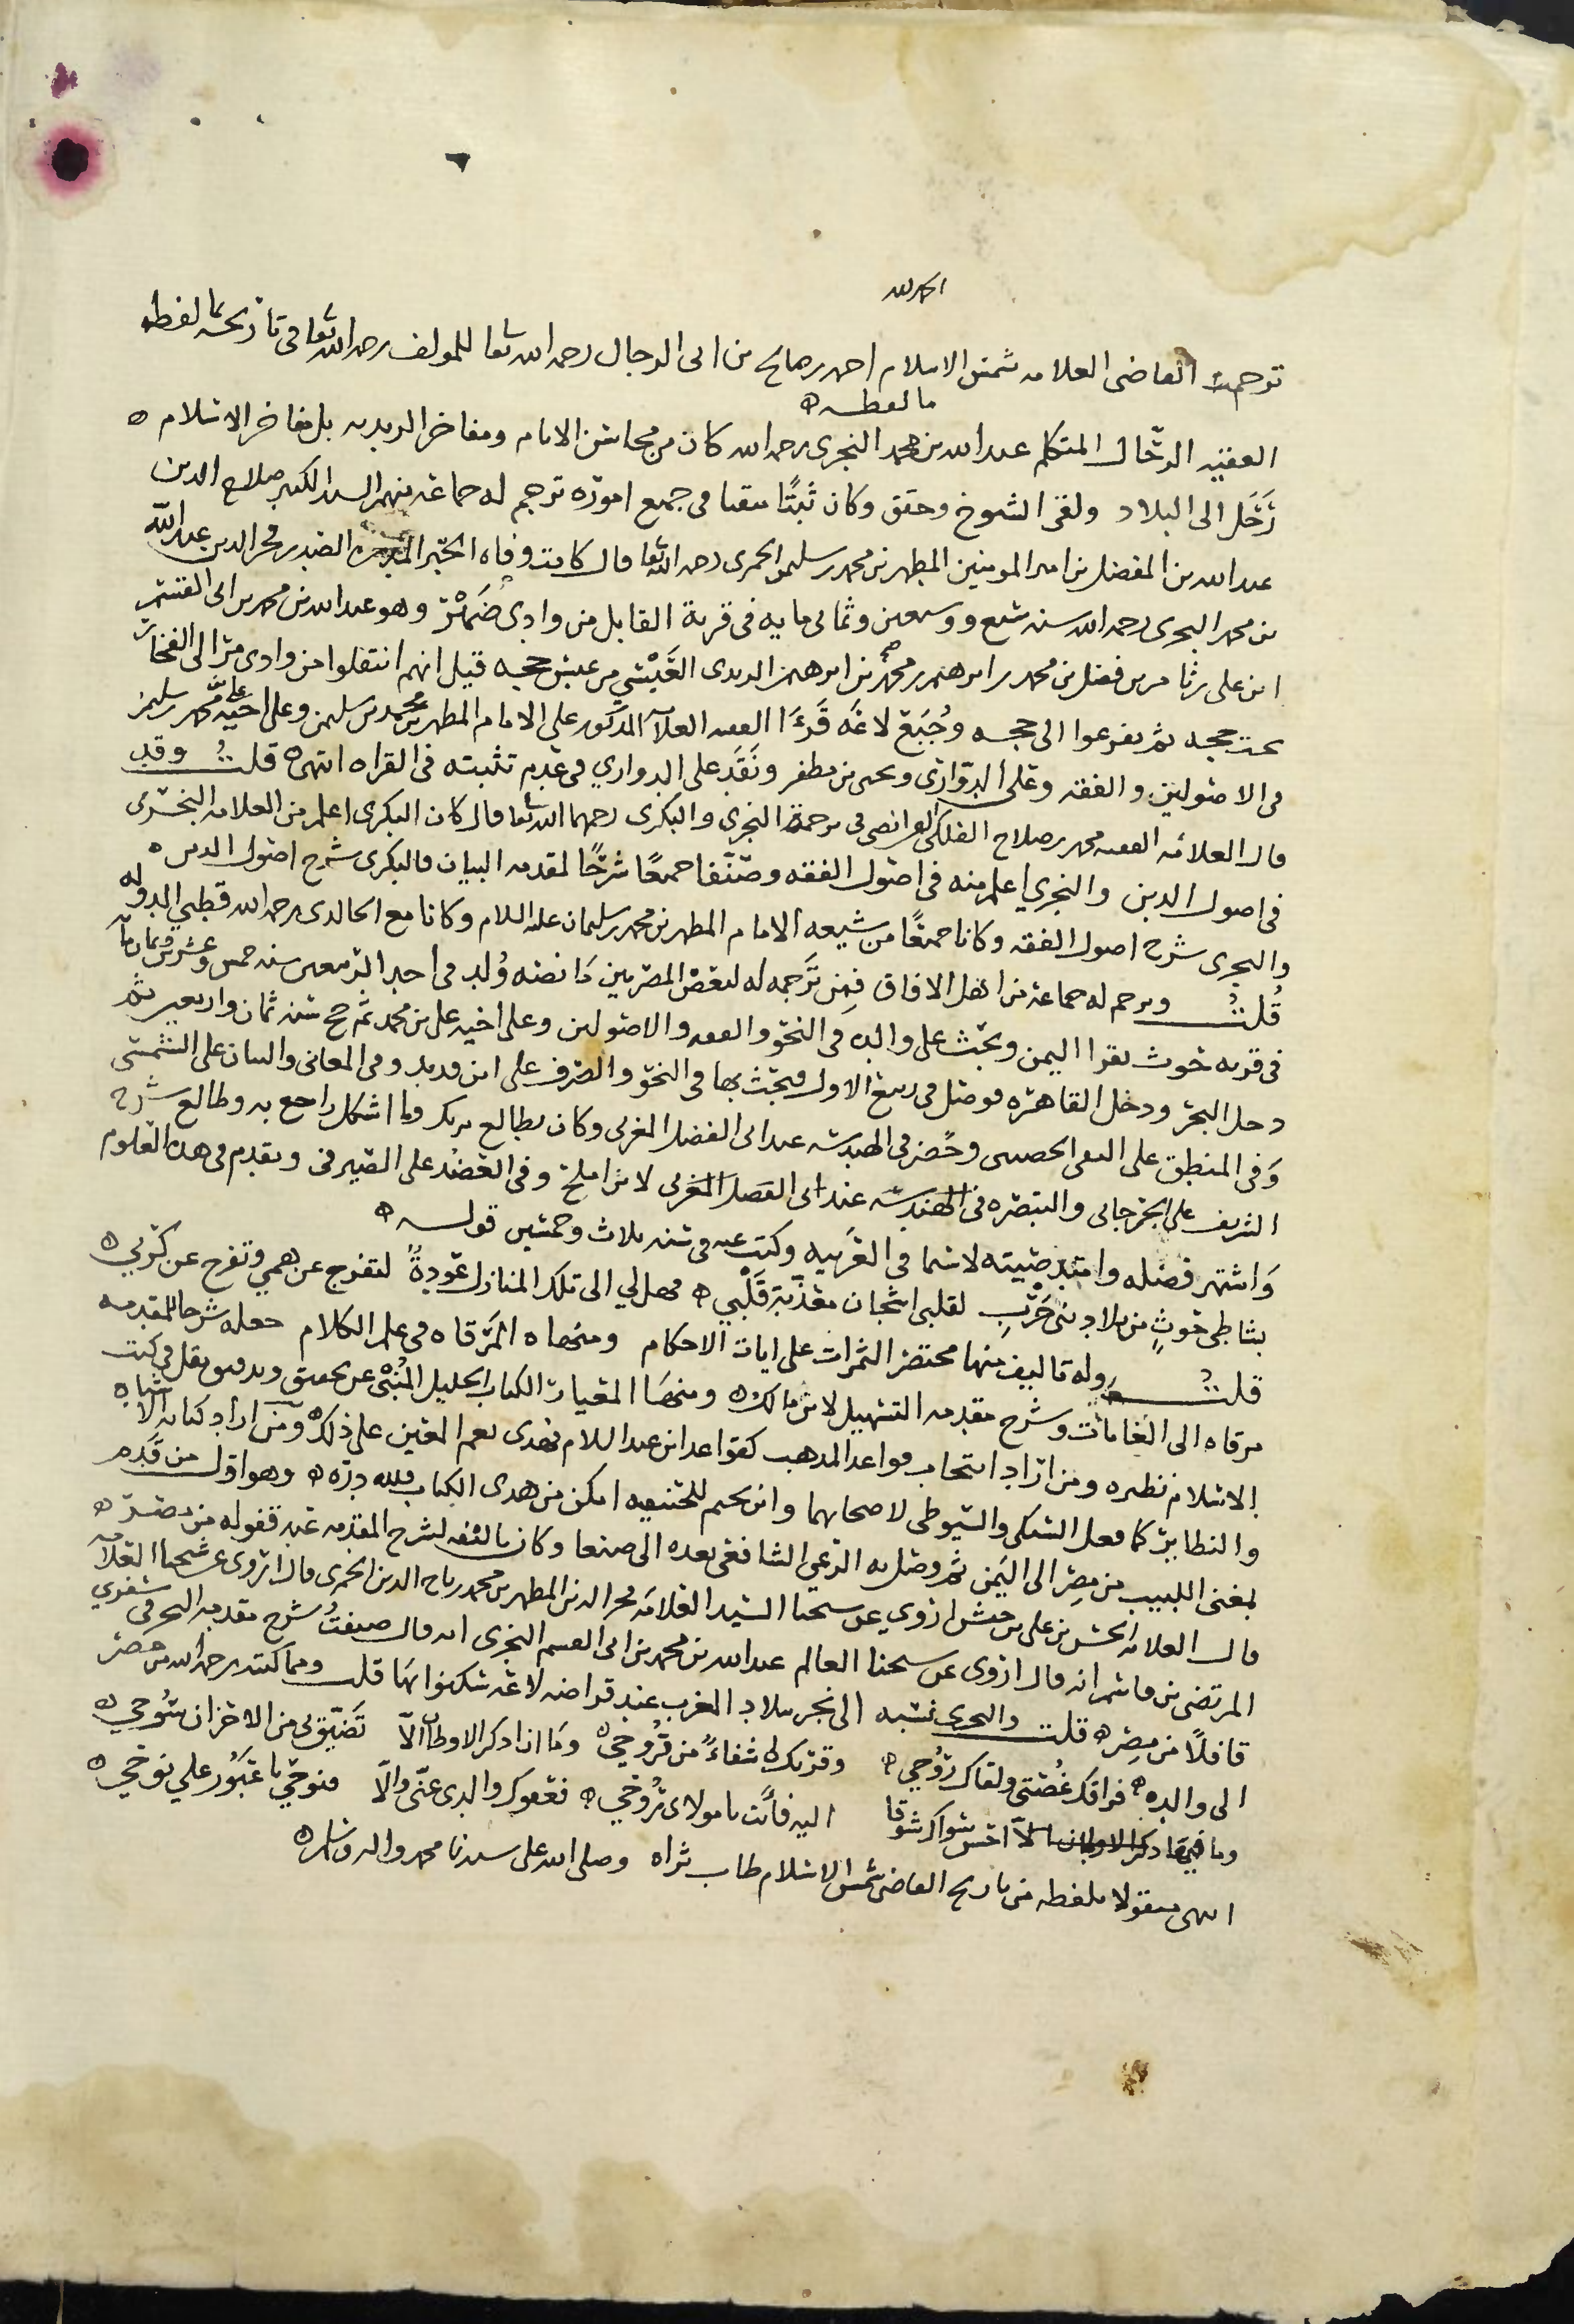 الحمد لله
ترجمة القاضي العلامه شمس الاسلام احمد بن صالح بن ابي الرجال رحمه الله تعا للمولف رحمه الله تعا في تاريخه بما لفظه
ما لفظه
الفقيه الرحّال المتكلم عبد الله بن محمد النجري رحمه الله كان من محاسن الايام ومفاخر الزيديه بل مفاخر الاسلام
رَحَل الى البلاد ولقي الشيوخ وحقق وكان ثبتًا متقنا في جميع اموره ترجم له جماعة منهم السيد الكبير صلاح الدين
عبد الله بن المفضل بن امير المومنين المطهر بن محمد بن سليمن الحمزى رحمه الله تعا قال كانت وفاه الصدر فخر الدين عبد الله
بن محمد النجري رحمه الله سنه سبع وسبعين وثمانمايه في قرية القابل من وادي ضَهْرْ وهو عبد الله بن محمد بن ابي القسم
ابن علي بن ثامر بن فضل بن محمد بن ابرهيم بن محمد بن ابرهيم الزيدى العَبْسي من عبس حجه قيل انهم انتقلوا من وادي
تحت حجه ثم تفرعوا الى حجه وجُبَع لاعَه قَرَءَا الفقيه العلا المذكور على الامام المطهر بن محمد بن سليمن وعلى اخيه علي بن محمد
في الاصولين والفقه وعلى الدوّاري ويحيى بن مظفر ونَقَد على الدواري في عدم تثبته في القراه انتهى قلتُ وقد
قال العلامه الفقيه محمد بن صلاح الفلكي الفرائضي في ترجمة النجري والبكري رحمهما الله تعا قال كان البكري اعلم من العلامه النجري
في اصول الدين والنجري اعلم منه في اصول الفقه وصنّفا جميعًا شرحًا لمقدمه البيان فالبكري شرح اصول الدين
والنجري شرح اصول الفقه وكانا جميعًا من شيعه الامام المطهر بن محمد بن سليمان عليه السلام وكانا مع الخالدى رحمه الله قطبي الدوله
قُلتُ وترجم له جماعة من اهل الافاق فمن تَرجمه له لبعض المصريين مَا نصه وُلد في احد الربيعين سنه خمس وعشرين وثمان مايه
في قريه حوث بقرا اليمن وبحث على والده في النحو والفقه والاصولين وعلى اخيه علي بن محمد ثم حج سنه ثمان واربعين ثم
دخل البحر ودخل القاهره فوصل في ربيع الاول فبحث بها في النحو والصرف على ابن قديد وفي المعاني والبيان على الشمني
وَفي المنطق على التقي الحصني وحضر في الهندسه عند ابي الفضل المغربي وكان يطالع ما اشكل راجع به وطالع شرح
الشريف على الجرجاني والتبصره في الهندسه عند ابي الفضل المغربي لابن افلح وفي على الصيرفي وتقدم في هذه العلوم
وَاشتهر فضله وامتد صيته لاسيما في العربيه وكتب عنه في سنه ثلاث وخمسين قوله
بشاطي حوثٍ من بلاد بني حَرْبِ لقلبي اشجان معذّبة قَلْبي فهل لي الى تلك المنازل عَودةٌ لتفرج عن همي وتفرج عن كربي
قلتُ وله تاليف منها مختصر الثمرات على ايات الاحكام ومنها المرقاه في علم الكلام جعله شرحا لمقدمه
مرقاه الى الغايات وشرح مقدمه التسهيل لابن مالك ومنها المعيار الكتاب الجليل المُنْبي عن تحقيق وتدقيق يقل في كتب
الاسلام نظيره ومن اراد انتخاب قواعد المذهب كقواعد ابن عبد السلام فهذى نعم المعين على ذلك ومن اراد كتابه الاشباه
والنظاير كما فعل السبكي والسيوطي لاصحابهما وابن نجيم للحنفيه امكن من هذى الكتاب فلله درّه وهو اوّل من قَدِم
بمغني اللبيب من مِصر الى اليَمن ثم وصل به الشافعي بعده الى صنعا وكان تاليفه لشرح المقدمه عند قفوله من مصر
قال العلامه الحسن بن علي بن حنش اروي عن شيخنا السيد العلامه فخر الدين المطهر بن محمد بن تاج الدين الحمزى قال اروي عن شيخنا العلامه
المرتضى بن قاسم انه قال اروي عن شيخنا العالم عبد الله بن محمد بن ابي القسم النجري انه قال صنفتُ شرح مقدمه البحر في سفري
قافلًا من مِصر قلت والنجري نسبه الى نجر ببلاد المغرب عند قراضه لاعَه سكنوا بها قلت ومما كتبه رحمه الله من مصر
الى والده فراقك غُصّتي ولقاك رَوُحي وقربك لي شفاءٌ من قُروحي وَما ان اذكر الاوطان الّا تَضيّق بي من الاحزان سُوحي
وما شوقا اليه فانت يا مولاى رُوحي فعفوك والدى عنّي والّا فنوحي يا عَبُور علي نوحي
انتهى منقولا بلفظه من تاريخ القاضي شمس الاسلام طاب ثراه وصلى الله على سيدنا محمد واله وسلم